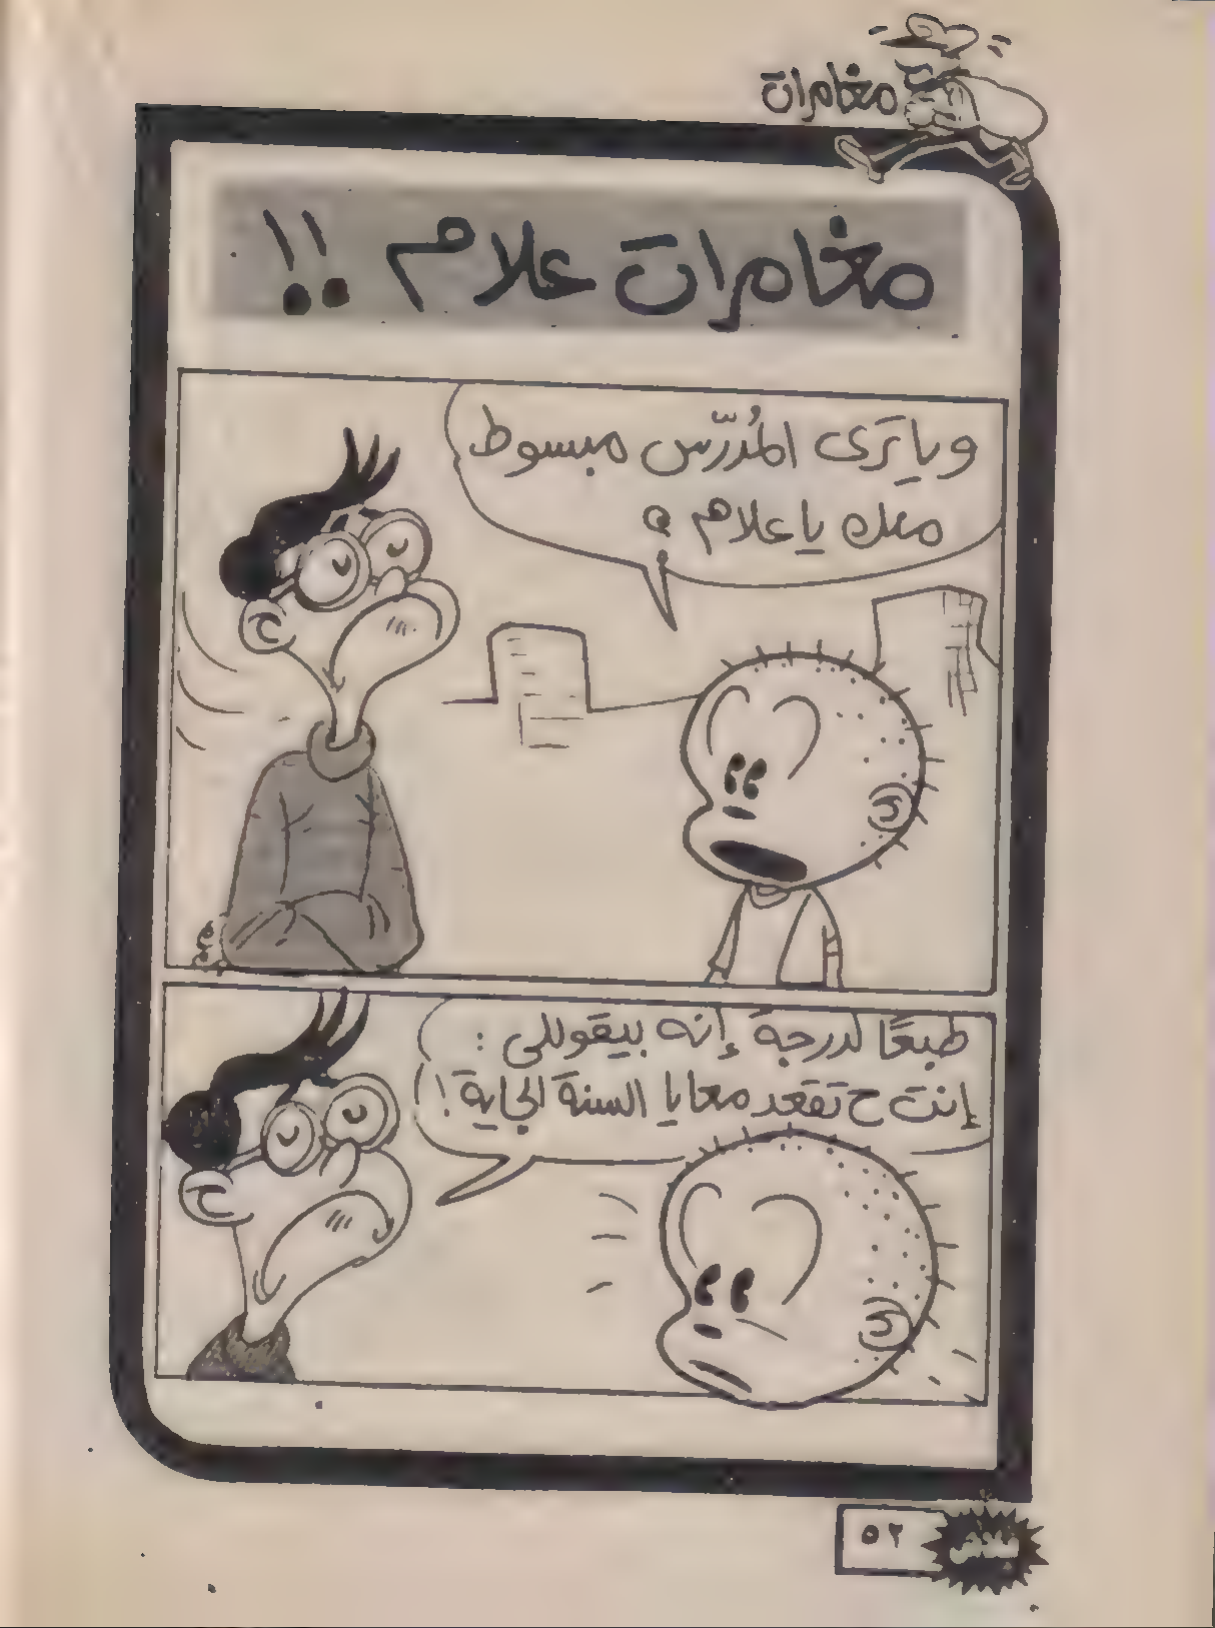 مغامرات
مغامرات علام !!
ويا تَرى المُدرّس مبسوط
معاك يا علام ؟
طبعًا لدرجة إنه بيقوللى :
إنت ح تقعد معايا السنة الجاية !
٥٢